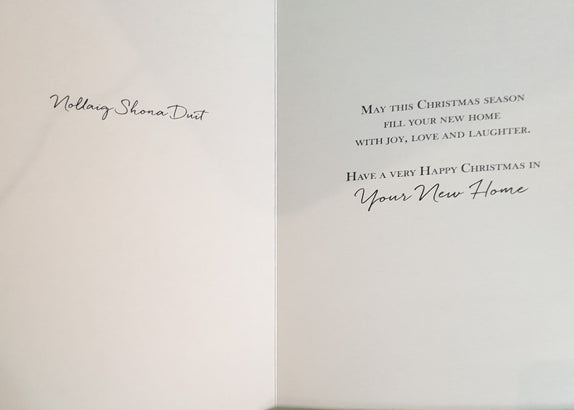 Nollaig Shona Duit
May this Christmas season
fill your new home
with joy, love and laughter.
Have a very Happy Christmas in
Your New Home